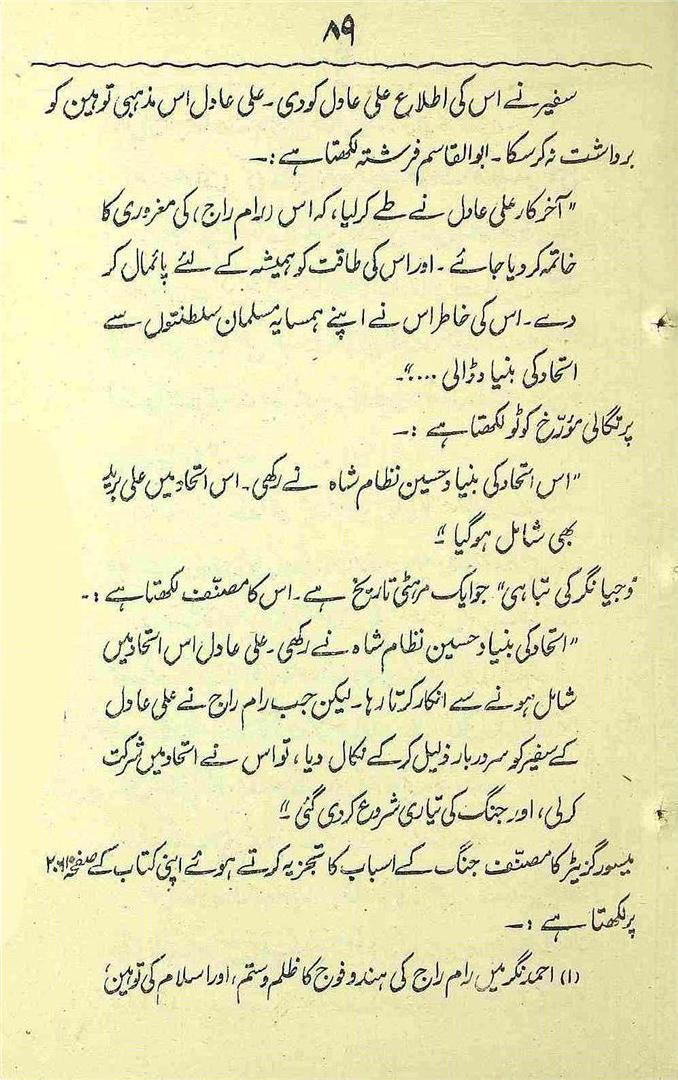 ۸۹
سفیر نے اس کی اطلاع علی عادل کو دی۔ علی عادل اس مذہبی توہین کو
برداشت نہ کر سکا۔ ابوالقاسم فرشتہ لکھتا ہے :۔
"آخر کار علی عادل نے طے کر لیا، کہ اس (رام راج) کی مغروری کا
خاتمہ کر دیا جائے۔ اور اس کی طاقت کو ہمیشہ کے لئے پائمال کر
دے۔ اس کی خاطر اس نے اپنے ہمسایہ مسلمان سلطنتوں سے
اتحاد کی بنیاد ڈالی ....."۔
پرتگالی مؤرّخ کوٹو لکھتا ہے :۔
"اس اتحاد کی بنیاد حسین نظام شاہ نے رکھی۔ اس اتحاد میں علی برید
بھی شامل ہوگیا۔"
"وجیانگر کی تباہی" جو ایک مرہٹی تاریخ ہے۔ اس کا مصنّف لکھتا ہے :۔
"اتحاد کی بنیاد حسین نظام شاہ نے رکھی۔ علی عادل اس اتحاد میں
شامل ہونے سے انکار کرتا رہا۔ لیکن جب رام راج نے علی عادل
کے سفیر کو سر دربار ذلیل کر کے نکال دیا، تو اس نے اتحاد میں شرکت
کرلی، اور جنگ کی تیاری شروع کر دی گئی۔"
میسور گزیٹر کا مصنّف جنگ کے اسباب کا تجزیہ کرتے ہوئے اپنی کتاب کے صفحہ
پر لکھتا ہے :۔
(۱) احمد نگر میں رام راج کی ہندو فوج کا ظلم و ستم، اور اسلام کی توہین؛